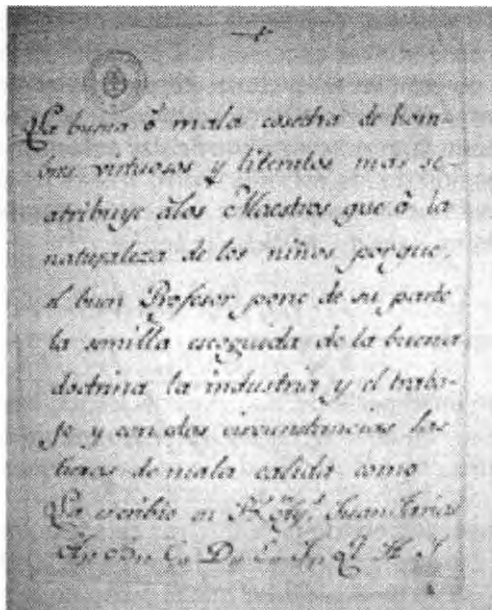 La buena ó mala cosecha de hom-
bres virtuosos y literatos mas se
atribuye álos Maestros que á la
naturaleza de los niños porque,
el buen Profesor pone de su parte
la semilla escoguida de la buena
doctrina la industria y el traba-
jo y con dos circunstancias las
tieras de mala calida como
La escribio en Juan Arias